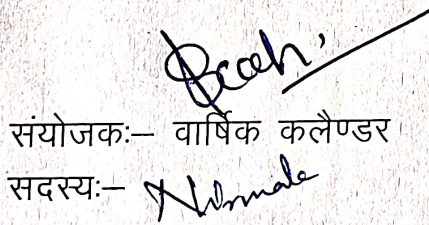 संयोजकः– वार्षिक कलैण्डर
सदस्यः– Nirmala